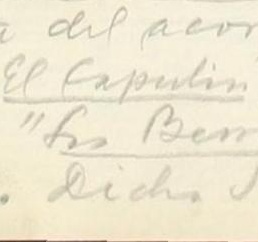 a del acor
El Capulin
"Los Berr
. Dicho